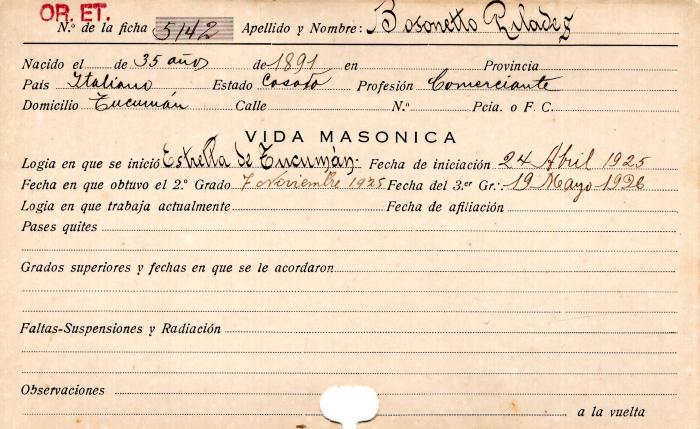 OR. ET.
N.º de la ficha 5142 Apellido y Nombre: Bosonetto Pilades
Nacido el de 35 años de 1891 en Provincia
País Italiano Estado Casado Profesión Comerciante
Domicilio Tucumán Calle N.º Pcia. o F. C.
VIDA MASONICA
Logia en que se inició Estrella de Tucumán. Fecha de iniciación 24 Abril 1925
Fecha en que obtuvo el 2.º Grado 7 Noviembre 1925 Fecha del 3.er Gr.: 19 Mayo 1926
Logia en que trabaja actualmente Fecha de afiliación
Pases quites
Grados superiores y fechas en que se le acordaron
Faltas-Suspensiones y Radiación
Observaciones
a la vuelta